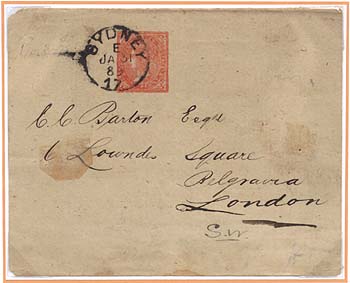 SYDNEY
E
JA 31
8
17
C. C. Barton Esqre
6 Lowndes Square
Belgravia
London
S.W